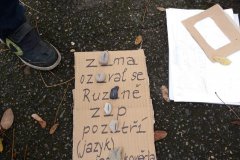 z ma
oz val se
Ruz ně
z p
poz tří
(jazyk)